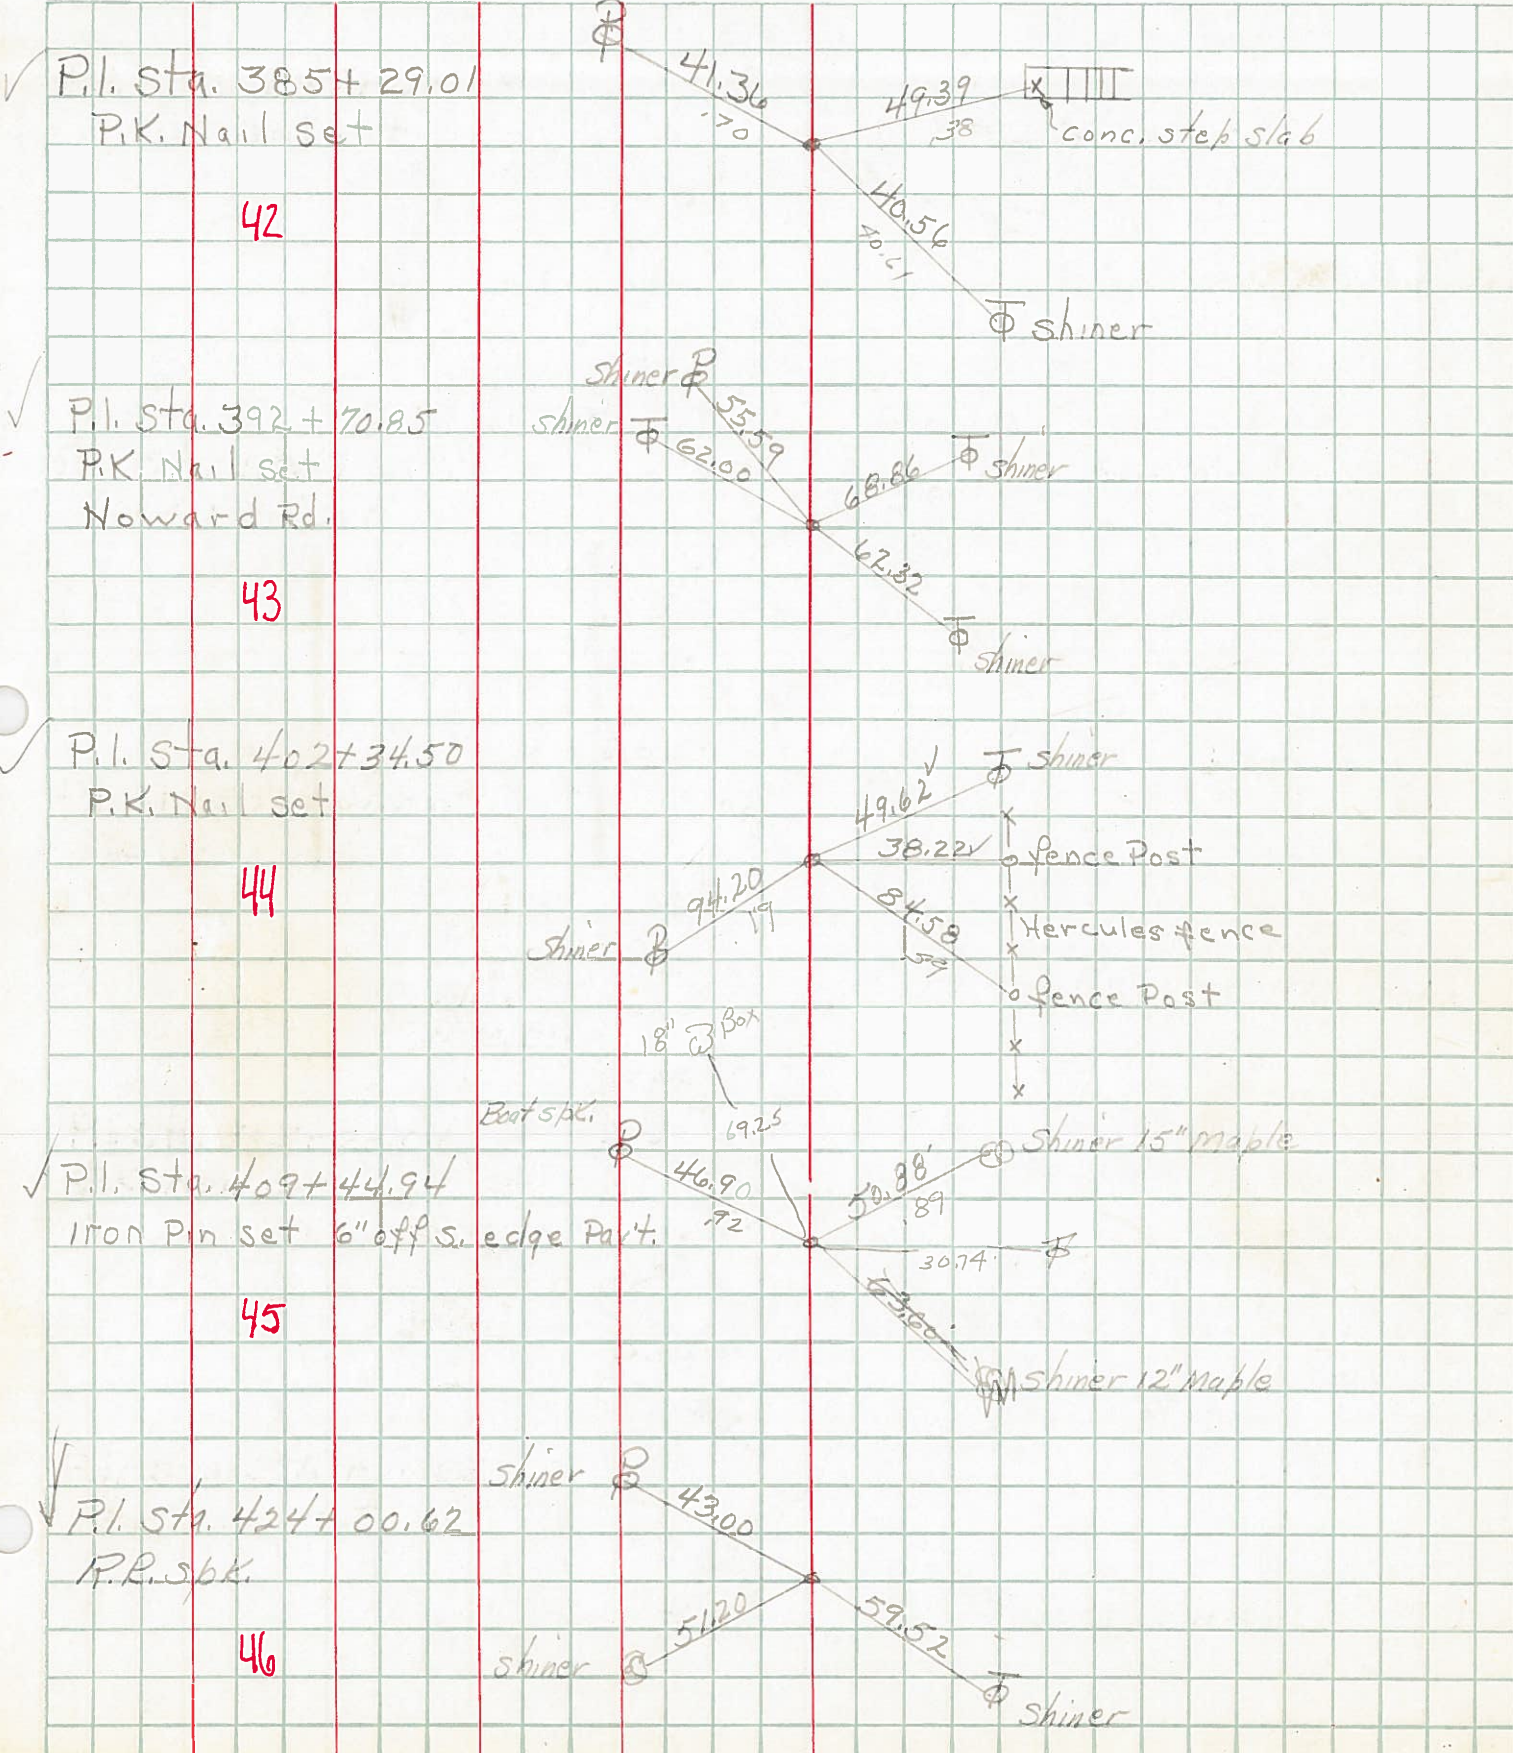 P.I. Sta. 385+29.01
P.K. Nail set
42
41.36
.70
49.39
.38
conc. step slab
40.56
40.61
shiner
P.I. Sta. 392+70.85
P.K. Nail set
Noward Rd.
43
shiner
55.59
shiner
62.00
68.86
shiner
62.32
shiner
P.I. Sta. 402+34.50
P.K. Nail set
44
49.62
shiner
38.22
fence Post
94.20
.19
shiner
84.58
Hercules fence
fence Post
18" Box
69.25
Boat spk.
P.I. Sta. 409+44.94
Iron Pin set 6" off S. edge Pav't.
45
46.90
.92
50.88'
.89
Shiner 15" Maple
30.74
53.60
Shiner 12" Maple
P.I. Sta. 424+00.62
R.R. spk.
46
shiner
43.00
51.20
shiner
59.52
shiner